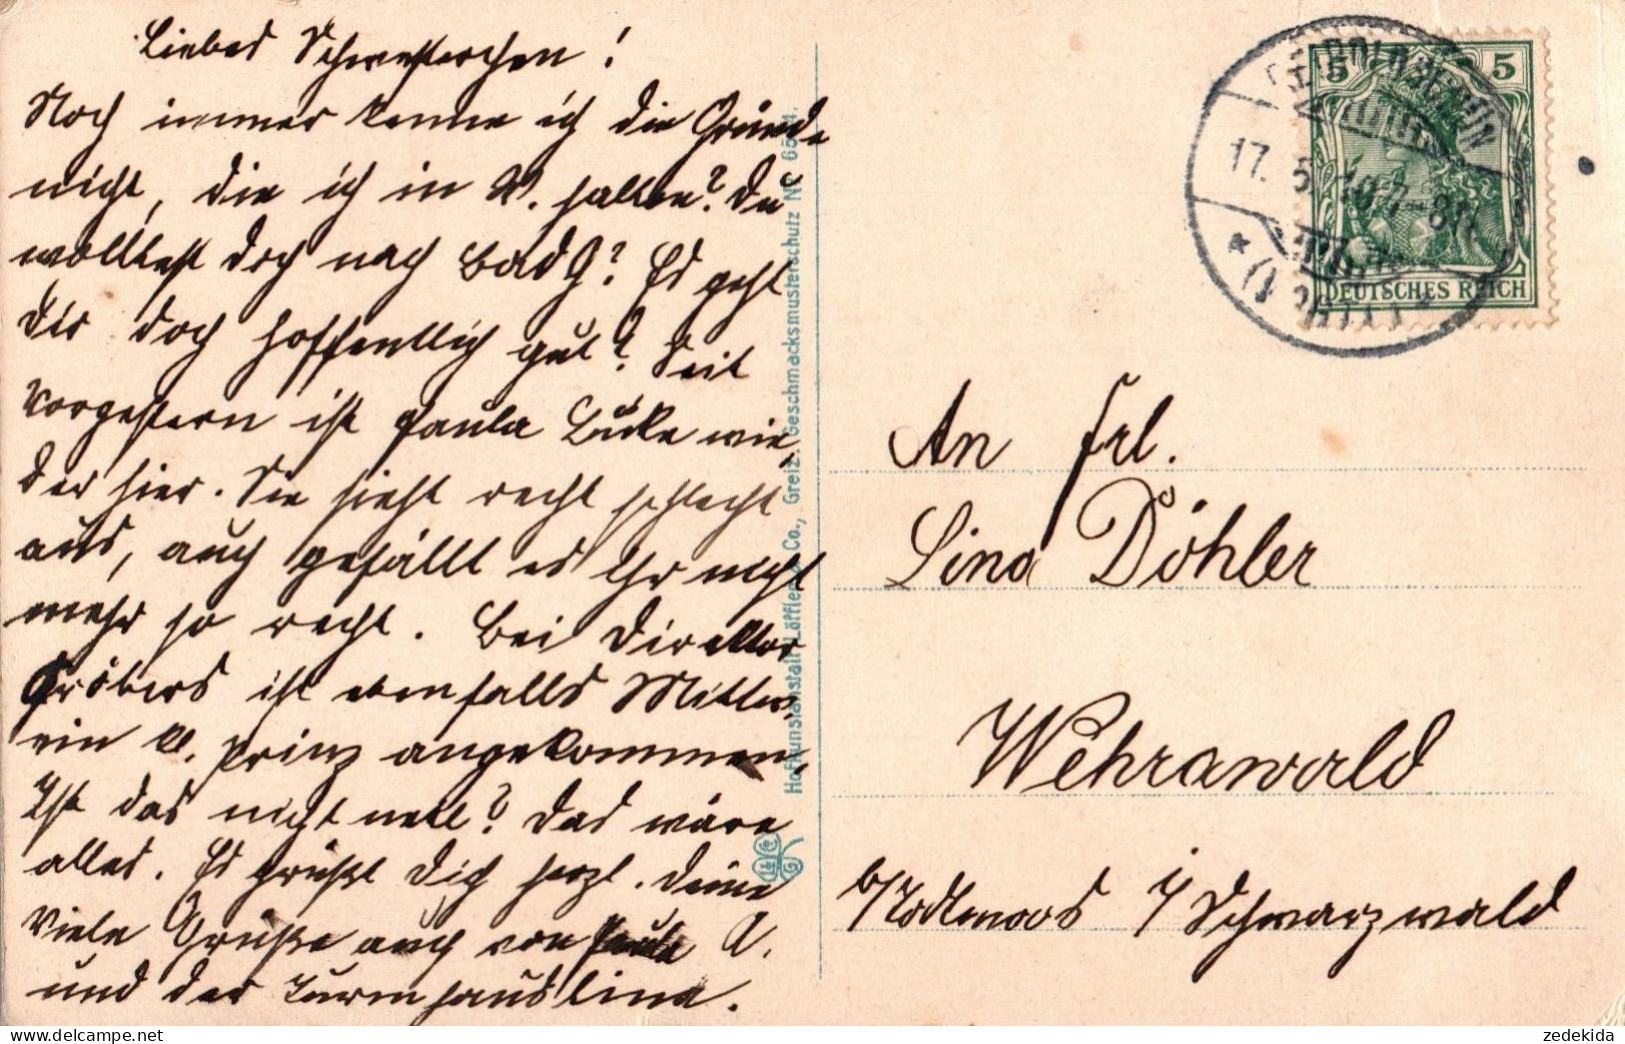 Liebes Schwesterchen!
Noch immer kenne ich die Gründe
nicht, die ich in W. halten? Du
wolltest doch nach Bad G? Es geht
Dir doch hoffentlich gut? Seit
vorgestern ist Paula Lücke wie
der hier. Sie sieht recht schlecht
aus, auch gefällt es Ihr nicht
mehr so recht. Bei Direktor
Gröbers ist ebenfalls Mittw.
ein kl. Prinz angekommen,
Ist das nicht nett? Das wäre
alles. Es grüßt Dich herzl. Deine
Viele Grüße auch von Paula A.
und der Turmhauslina.
Hofkunstanstalt Löffler & Co., Greiz. Geschmacksmusterschutz No
5 5
DEUTSCHES REICH
17. 5. 10. 7-8N.
An Frl.
Lina Döhler
Wehrawald
b/Todtmoos i/Schwarzwald
zedekida